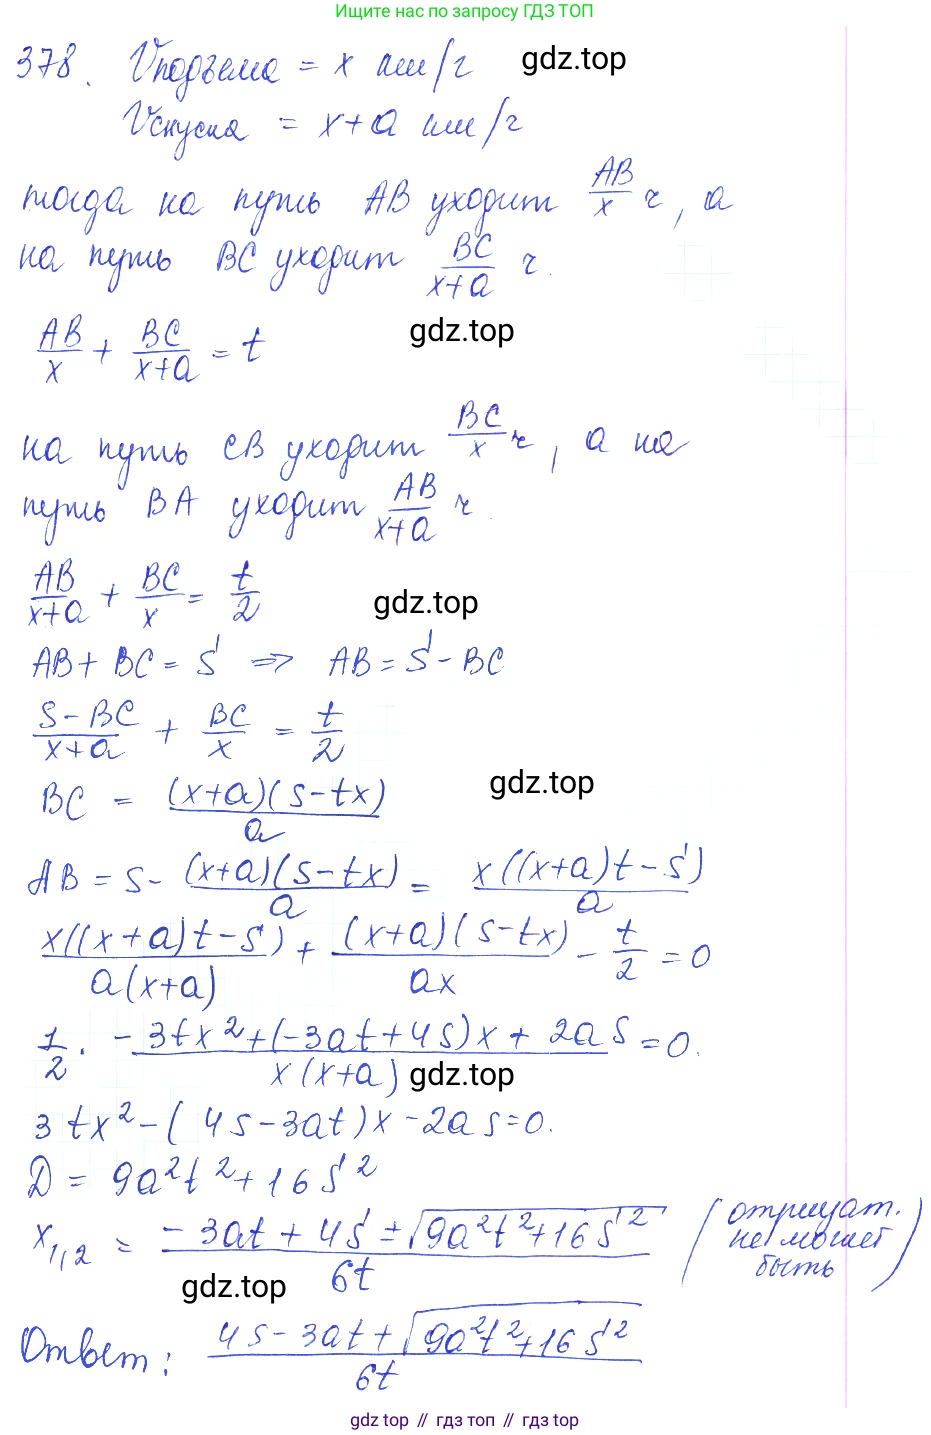 Ищите нас по запросу ГДЗ ТОП
378. Vподъема = x км/г gdz.top
Vспуска = x+a км/г
тогда на путь AB уходит AB/x ч, а
на путь BC уходит BC/(x+a) ч.
AB/x + BC/(x+a) = t gdz.top
на путь CB уходит BC/x ч, а на
путь BA уходит AB/(x+a) ч.
AB/(x+a) + BC/x = t/2 gdz.top
AB + BC = S => AB = S - BC
(S-BC)/(x+a) + BC/x = t/2
BC = (x+a)(s-tx)/a gdz.top
AB = S - (x+a)(s-tx)/a = x((x+a)t-s)/a
x((x+a)t-s)/(a(x+a)) + (x+a)(s-tx)/(ax) - t/2 = 0
1/2 · (-3tx²+(-3at+4s)x+2as)/(x(x+a)) = 0. gdz.top
3tx²-(4s-3at)x-2as=0.
D = 9a²t²+16s²
x₁,₂ = (-3at+4s±√(9a²t²+16s²))/(6t) (отрицат. не может быть)
gdz.top
Ответ: (4s-3at+√(9a²t²+16s²))/(6t)
gdz top // гдз топ // gdz top